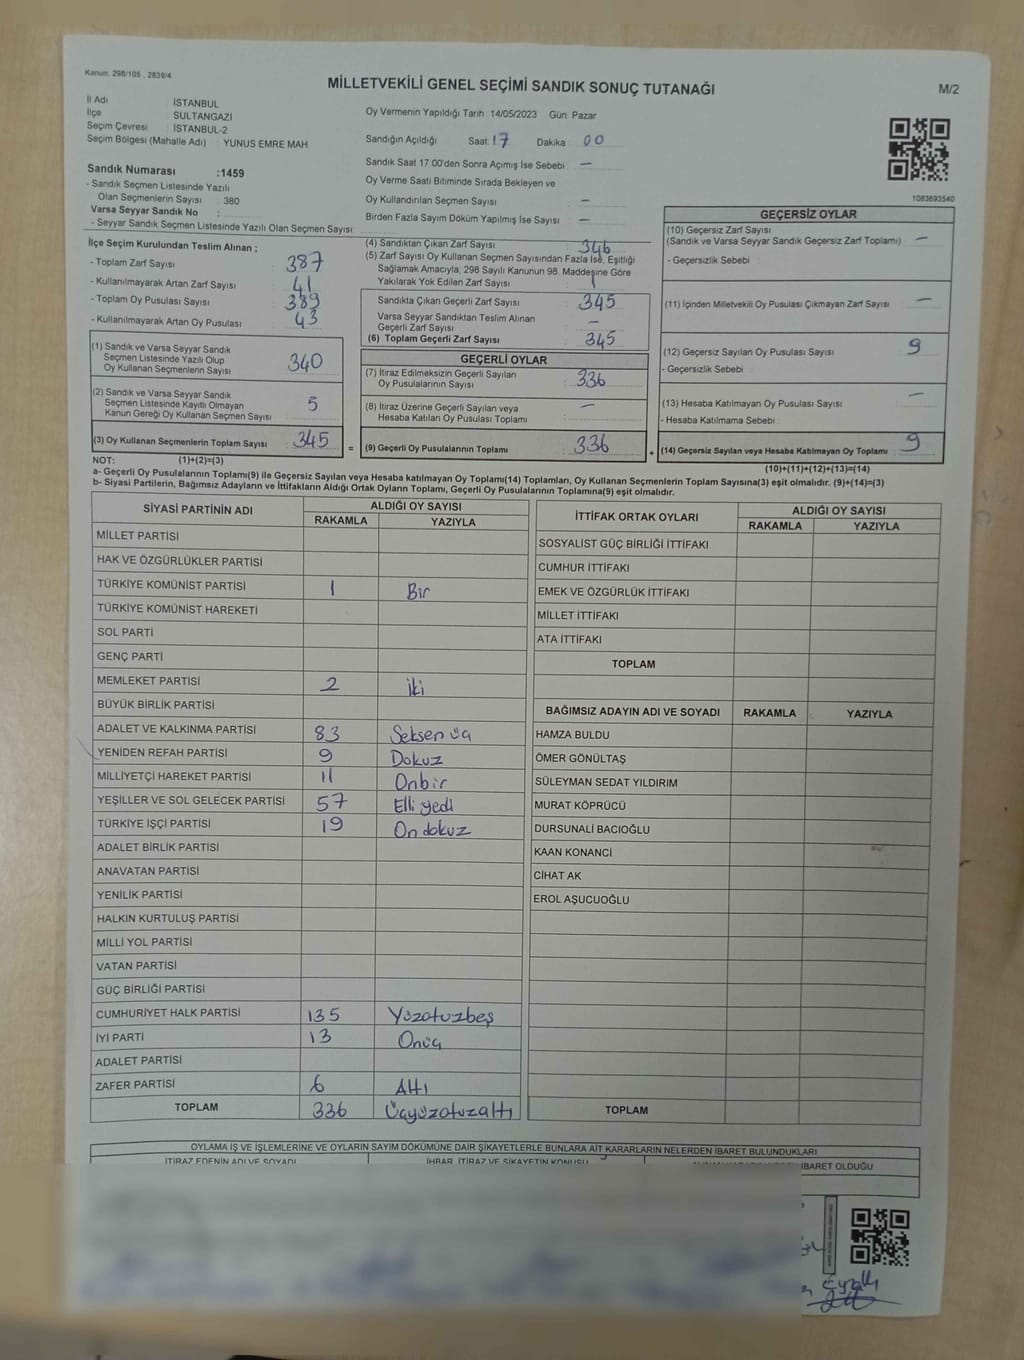 Kanun: 298/105 , 2839/4
MİLLETVEKİLİ GENEL SEÇİMİ SANDIK SONUÇ TUTANAĞI
M/2
İl Adı İSTANBUL
İlçe SULTANGAZİ
Seçim Çevresi İSTANBUL-2
Seçim Bölgesi (Mahalle Adı) YUNUS EMRE MAH.
Sandık Numarası :1459
- Sandık Seçmen Listesinde Yazılı
Olan Seçmenlerin Sayısı : 380
Varsa Seyyar Sandık No :
- Seyyar Sandık Seçmen Listesinde Yazılı Olan Seçmen Sayısı
Oy Vermenin Yapıldığı Tarih :14/05/2023 Gün: Pazar
Sandığın Açıldığı Saat 17 Dakika 00
Sandık Saat 17:00'den Sonra Açımış İse Sebebi : —
Oy Verme Saati Bitiminde Sırada Bekleyen ve
Oy Kullandırılan Seçmen Sayısı : —
Birden Fazla Sayım Döküm Yapılmış İse Sayısı : —
1083693540
İlçe Seçim Kurulundan Teslim Alınan ;
- Toplam Zarf Sayısı : 387
- Kullanılmayarak Artan Zarf Sayısı : 41
- Toplam Oy Pusulası Sayısı : 389
- Kullanılmayarak Artan Oy Pusulası : 43
(1) Sandık ve Varsa Seyyar Sandık
Seçmen Listesinde Yazılı Olup
Oy Kullanan Seçmenlerin Sayısı : 340
(2) Sandık ve Varsa Seyyar Sandık
Seçmen Listesinde Kayıtlı Olmayan
Kanun Gereği Oy Kullanan Seçmen Sayısı : 5
(3) Oy Kullanan Seçmenlerin Toplam Sayısı : 345 =
(4) Sandıktan Çıkan Zarf Sayısı : 346
(5) Zarf Sayısı Oy Kullanan Seçmen Sayısından Fazla İse, Eşitliği
Sağlamak Amacıyla, 298 Sayılı Kanunun 98. Maddesine Göre
Yakılarak Yok Edilen Zarf Sayısı : 1
Sandıkta Çıkan Geçerli Zarf Sayısı : 345
Varsa Seyyar Sandıktan Teslim Alınan
Geçerli Zarf Sayısı : —
(6) Toplam Geçerli Zarf Sayısı : 345
GEÇERLİ OYLAR
(7) İtiraz Edilmeksizin Geçerli Sayılan
Oy Pusulalarının Sayısı : 336
(8) İtiraz Üzerine Geçerli Sayılan veya
Hesaba Katılan Oy Pusulaları Toplamı : —
(9) Geçerli Oy Pusulalarının Toplamı : 336 +
GEÇERSİZ OYLAR
(10) Geçersiz Zarf Sayısı
(Sandık ve Varsa Seyyar Sandık Geçersiz Zarf Toplamı) : —
- Geçersizlik Sebebi :
(11) İçinden Milletvekili Oy Pusulası Çıkmayan Zarf Sayısı : —
(12) Geçersiz Sayılan Oy Pusulası Sayısı : 9
- Geçersizlik Sebebi :
(13) Hesaba Katılmayan Oy Pusulası Sayısı : —
- Hesaba Katılmama Sebebi :
(14) Geçersiz Sayılan veya Hesaba Katılmayan Oy Toplamı : 9
NOT: (1)+(2)=(3)
(10)+(11)+(12)+(13)=(14)
a- Geçerli Oy Pusulalarının Toplamı(9) ile Geçersiz Sayılan veya Hesaba katılmayan Oy Toplamı(14) Toplamları, Oy Kullanan Seçmenlerin Toplam Sayısına(3) eşit olmalıdır. (9)+(14)=(3)
b- Siyasi Partilerin, Bağımsız Adayların ve İttifakların Aldığı Oyların Toplamı, Geçerli Oy Pusulalarının Toplamına(9) eşit olmalıdır.
SİYASİ PARTİNİN ADI ALDIĞI OY SAYISI
RAKAMLA YAZIYLA
MİLLET PARTİSİ
HAK VE ÖZGÜRLÜKLER PARTİSİ
TÜRKİYE KOMÜNİST PARTİSİ 1 Bir
TÜRKİYE KOMÜNİST HAREKETİ
SOL PARTİ
GENÇ PARTİ
MEMLEKET PARTİSİ 2 iki
BÜYÜK BİRLİK PARTİSİ
ADALET VE KALKINMA PARTİSİ 83 Seksen üç
YENİDEN REFAH PARTİSİ 9 Dokuz
MİLLİYETÇİ HAREKET PARTİSİ 11 Onbir
YEŞİLLER VE SOL GELECEK PARTİSİ 57 Elli yedi
TÜRKİYE İŞÇİ PARTİSİ 19 On dokuz
ADALET BİRLİK PARTİSİ
ANAVATAN PARTİSİ
YENİLİK PARTİSİ
HALKIN KURTULUŞ PARTİSİ
MİLLİ YOL PARTİSİ
VATAN PARTİSİ
GÜÇ BİRLİĞİ PARTİSİ
CUMHURİYET HALK PARTİSİ 135 Yüzotuzbeş
İYİ PARTİ 13 Onüç
ADALET PARTİSİ
ZAFER PARTİSİ 6 Altı
TOPLAM 336 Üçyüzotuzaltı
İTTİFAK ORTAK OYLARI ALDIĞI OY SAYISI
RAKAMLA YAZIYLA
SOSYALİST GÜÇ BİRLİĞİ İTTİFAKI
CUMHUR İTTİFAKI
EMEK VE ÖZGÜRLÜK İTTİFAKI
MİLLET İTTİFAKI
ATA İTTİFAKI
TOPLAM
BAĞIMSIZ ADAYIN ADI VE SOYADI RAKAMLA YAZIYLA
HAMZA BULDU
ÖMER GÖNÜLTAŞ
SÜLEYMAN SEDAT YILDIRIM
MURAT KÖPRÜCÜ
DURSUNALİ BACIOĞLU
KAAN KONANCİ
CİHAT AK
EROL AŞUCUOĞLU
TOPLAM
OYLAMA İŞ VE İŞLEMLERİNE VE OYLARIN SAYIM DÖKÜMÜNE DAİR ŞİKAYETLERLE BUNLARA AİT KARARLARIN NELERDEN İBARET BULUNDUKLARI
İTİRAZ EDENİN ADI VE SOYADI İHBAR, İTİRAZ VE ŞİKAYETİN KONUSU İBARET OLDUĞU